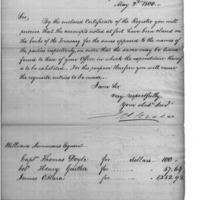 May 9th 1800.
Sir,
By the enclosed Certificate of the Register you will
perceive that the accounts noted at foot have been closed on
the books of the Treasury for the sums opposed to the names of
the parties respectively, in order that the same may be trans
ferred to those of your Office in which the expenditures having
to be exhibited. For this purpose therefore you will make
the requisite entries to be made.
I am Sir
very respectfully
Your obed. Servt.
William Simmons Esquire
Capt. Thomas Doyle for dollars 100.
Col. Henry Gaither for 57.64
James O'Hara for